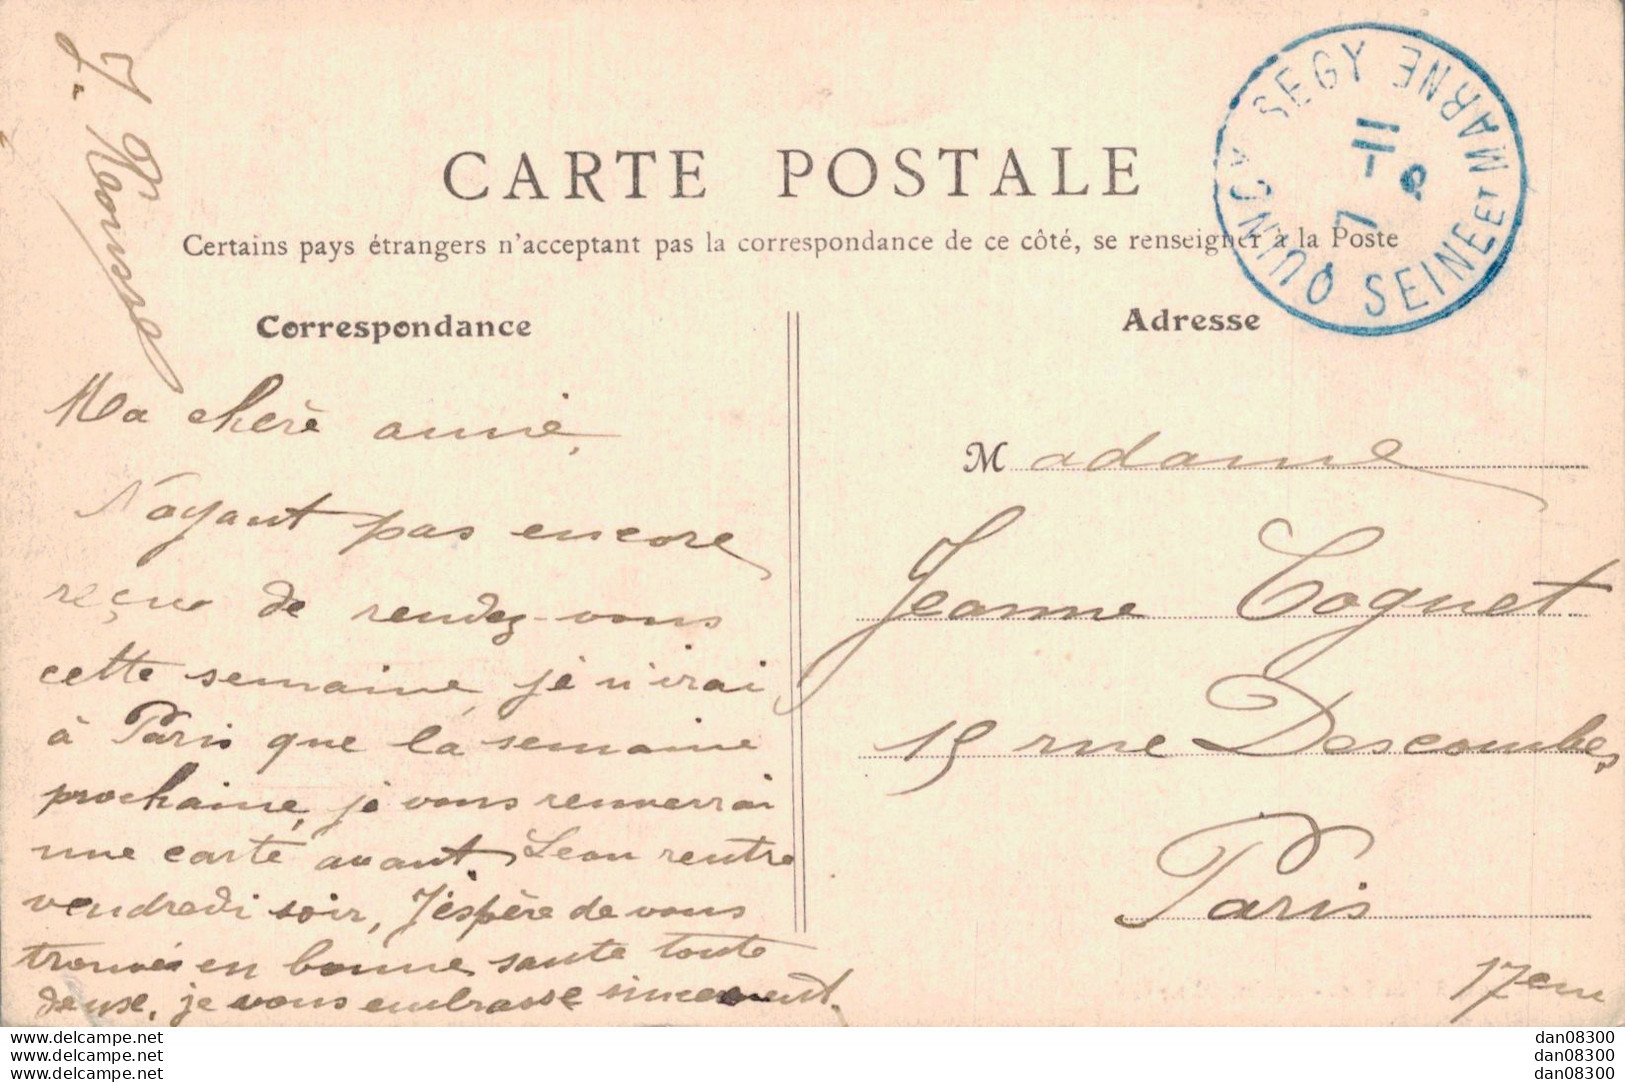 CARTE POSTALE
Certains pays étrangers n'acceptant pas la correspondance de ce côté, se renseigner à la Poste
QUINCY SEGY SEINE ET MARNE
11
7
Correspondance
Adresse
Ma chère amie,
N'ayant pas encore
reçu de rendez-vous
cette semaine, je n'irai
à Paris que la semaine
prochaine, je vous renverrai
une carte avant. Léon rentre
vendredi soir, J'espère de vous
trouvés en bonne santé toute
deuse, je vous embrasse sincerement.
Madame
Jeanne Coquet
15 rue Descombes
Paris
17em
www.delcampe.net
www.delcampe.net
www.delcampe.net
dan08300
dan08300
dan08300